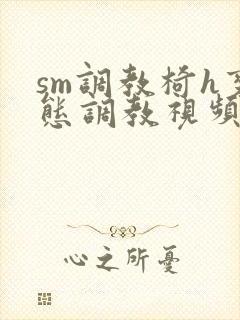 sm調教椅h
態調教視頻
心之所憂